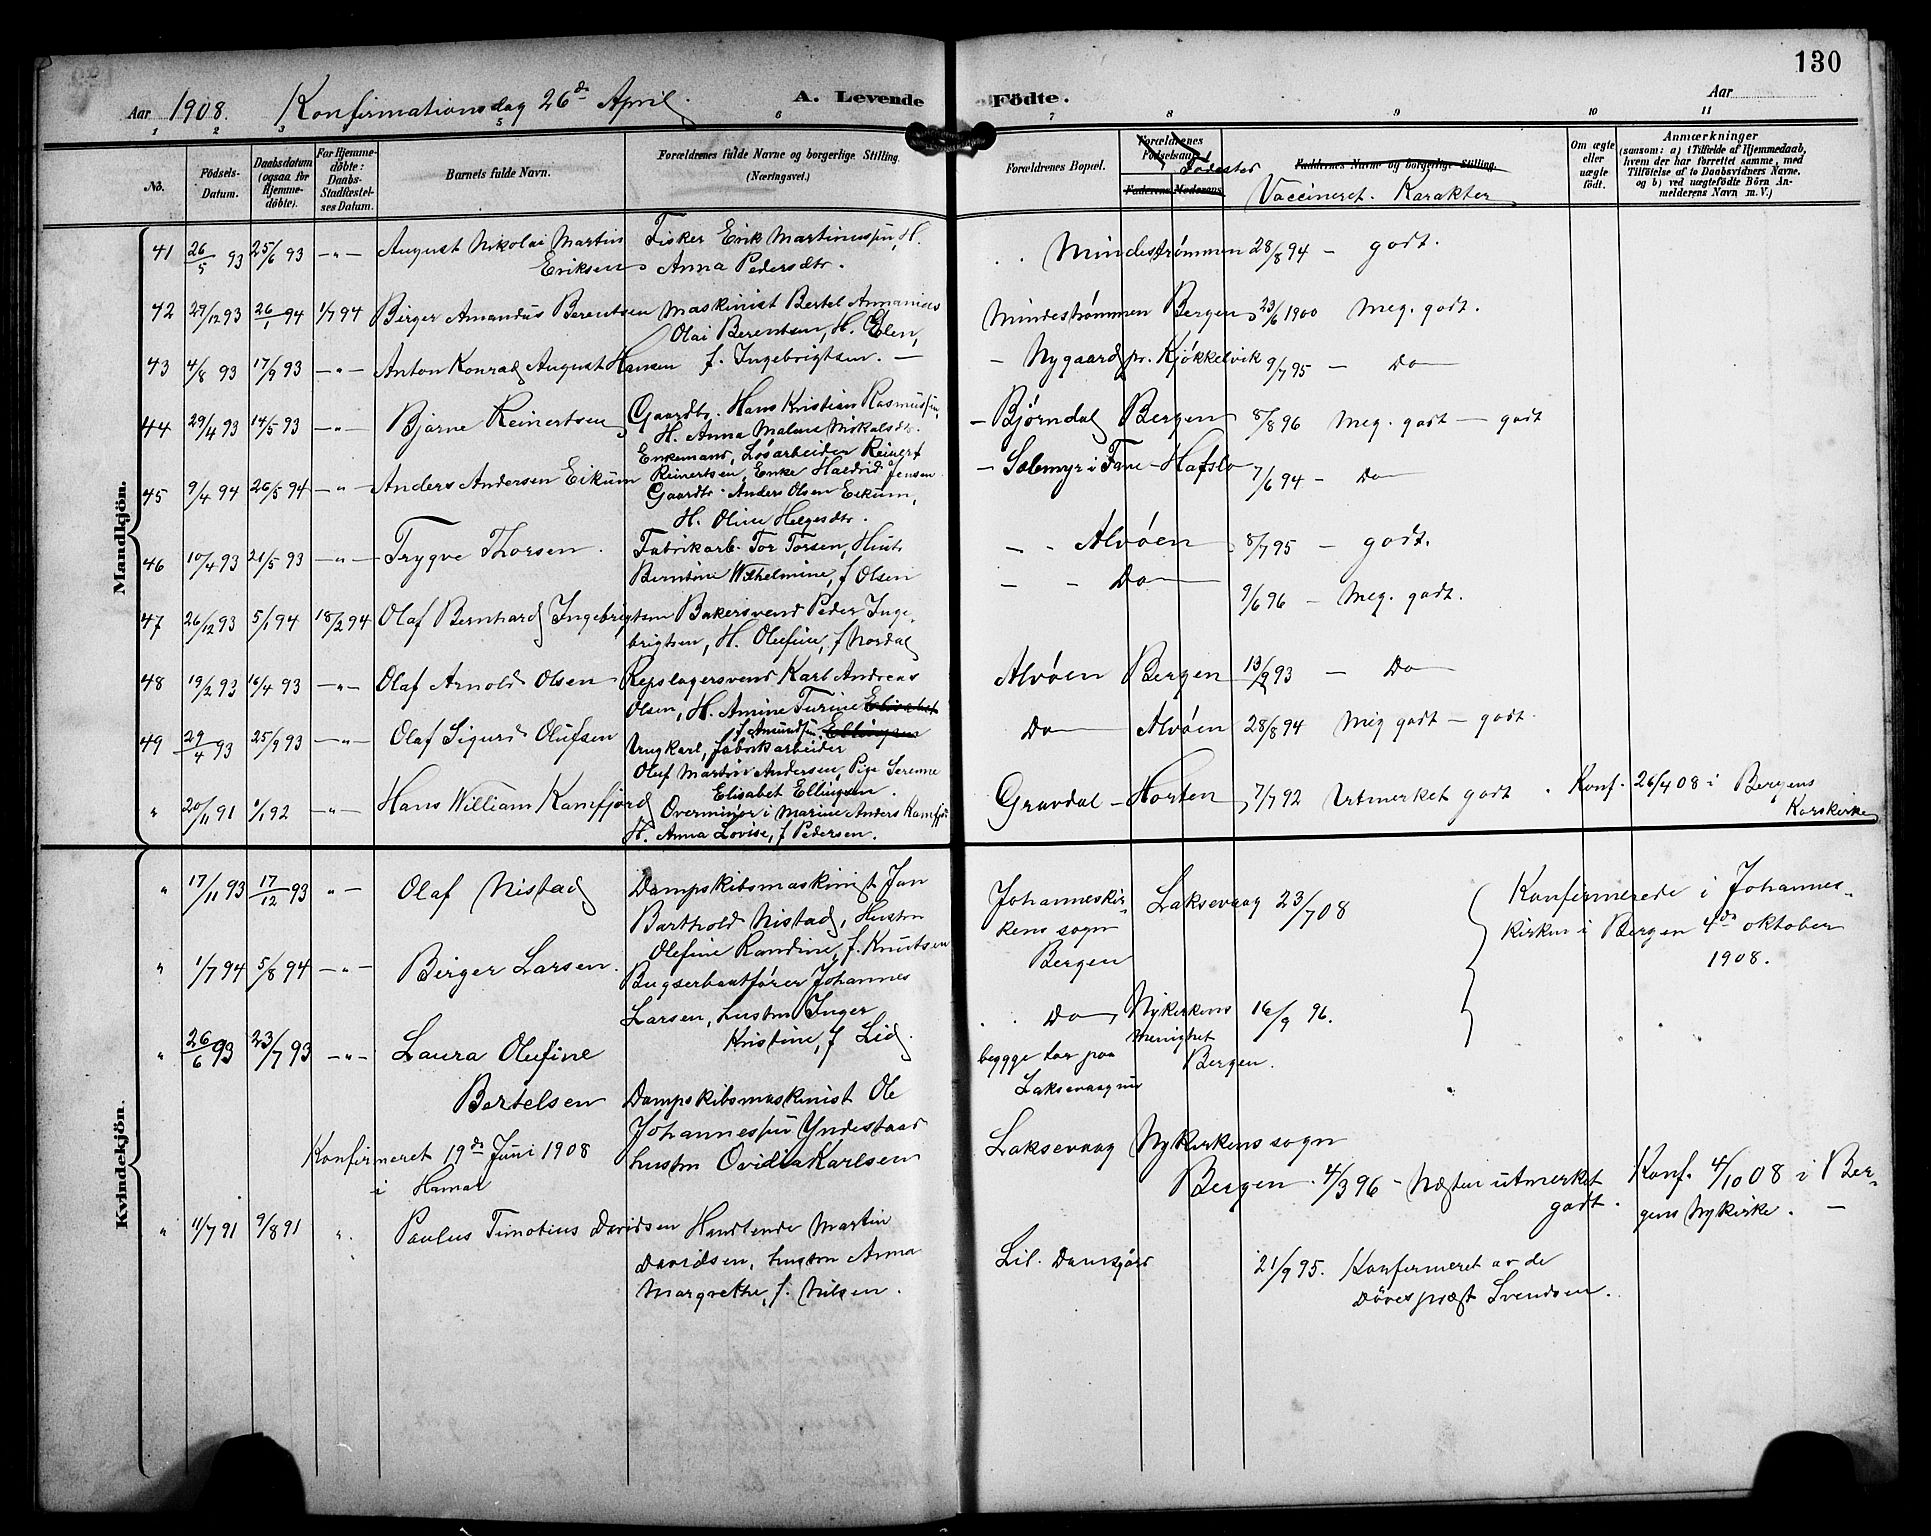 130
Aar 1908. Konfirmationsdag 26de April. A. Levende Födte. Aar
1 2 3 5 6 7 8 9 10 11
No.
Födsels-Datum.
Daabsdatum (ogsaa for Hjemme-döbte).
For Hjemme-döbte: Daabs-Stadfæstel-ses Datum.
Barnets fulde Navn.
Forældrenes fulde Navne og borgerlige Stilling.
(Næringsvei.)
Forældrenes Bopæl.
Forældrenes Födselsaar
Faderens Moderens
Fødested
Faddernes Navne og borgerlige Stilling.
Vaccineret. Karakter
Om ægte eller uægte födt.
Anmærkninger
(saasom: a) i Tilfælde af Hjemmedaab, hvem der har forrettet samme, med Tilföielse af to Daabsvidners Navne, og b) ved uægtefödte Börn An-melderens Navn m. V.)
Mandkjön.
41 26/5 93 25/6 93 -"- August Nikolai Martin Fisker Erik Martinussen, H. . . Mindestrømmen 28/8 94 – godt.
Eriksen Anna Pedersdtr.
42 29/12 93 26/1 94 1/7 94 Birger Amandus Berentsen Maskinist Bertel Annanias Mindestrømmen Bergen 23/6 1900 Meg. godt.
Olai Berentsen, H. Elen,
43 4/8 93 17/9 93 -"- Anton Konrad August Hansen f. Ingebrigtsen. – – Nygaard pr. Kjøkkelvik 9/7 95 – Do
44 29/4 93 14/5 93 -"- Bjarne Reinertsen Gaardbr. Hans Kristian Rasmussen, – Bjørndal Bergen 8/8 96 Meg. godt – godt
H. Anna Malene Nikolaisdtr.
Enkemand, Løsarbeider Reinert
45 9/4 94 26/5 94 -"- Anders Andersen Eikum Reinertsen, Enke Haldrid Jensen – Sælemyr i Fane – Hafslo 7/6 94 – Do
Gaardbr. Anders Olsen Eikum,
H. Oline Helgesdtr.
46 10/4 93 21/5 93 -"- Trygve Thorsen. Fabrikarb. Tor Torsen, Hustr. – - Alvøen 8/7 95 – godt.
Berntine Wilhelmine, f Olsen – - Do
9/6 96 – Meg. godt.
47 26/12 93 5/1 94 18/2 94 Olaf Bernhard Ingebrigtsen Bakersvend Peder Inge-
brigtsen, H. Olufine, f Nordal
48 19/2 93 16/4 93 -"- Olaf Arnold Olsen Repslagersvend Karl Andreas Alvøen Bergen 13/9 93 – Do
Olsen, H. Amine Turine
f Amundsen. Ellingsen
49 29/4 93 25/9 93 -"- Olaf Sigurd Olufsen Ungkarl, fabrikarbeider Do Alvøen 28/8 94 Meg godt – godt.
Oluf Martin Andersen, Pige Serenne
Elisabet Ellingsen.
" 20/11 91 1/1 92 -"- Hans William Kamfjord Overminør i Marine Anders Kamfj. Gravdal – Horten 7/7 92 Utmerket godt. Konf. 26/4 08 i Bergens
H. Anna Lovise, f Pedersen. Korskirke
Kvindekjön.
" 17/11 93 17/12 93 "– Olaf Nistad Dampskibsmaskinist Jan Johanneskir- Laksevaag 23/7 08 Konfirmerede i Johannes-
Barthold Nistad, Hustru kens sogn kirken i Bergen 4de oktober
Olefine Randine, f. Knutsen Bergen 1908.
" 1/7 94 5/8 94 -"- Birger Larsen. Bugserbaatfører Johannes . . Do Nykirkens 16/9 96.
Larsen, hustru Inger menighet
Kristine, f Lid. begge bor paa Bergen.
Laksevaag nu
" 26/6 93 23/7 93 -"- Laura Olufine
Bertelsen Dampskibsmaskinist Ole
Johannessen Yndestaad Laksevaag Nykirkens sogn
Konfirmeret 19de Juni 1908 hustru Ovidia Karlsen Bergen. 4/3 96 – Næsten utmerket Konf. 4/10 08 i Ber-
i Hamar godt. gens Nykirke. –
" 11/7 91 9/8 91 ". Paulus Timotius Davidsen Handlende Martin
Davidsen, hustru Anna Lil. Damsgård 21/9 95. Konfirmeret av de
Margrethe, f. Nilsen. Døves præst Svendsen.